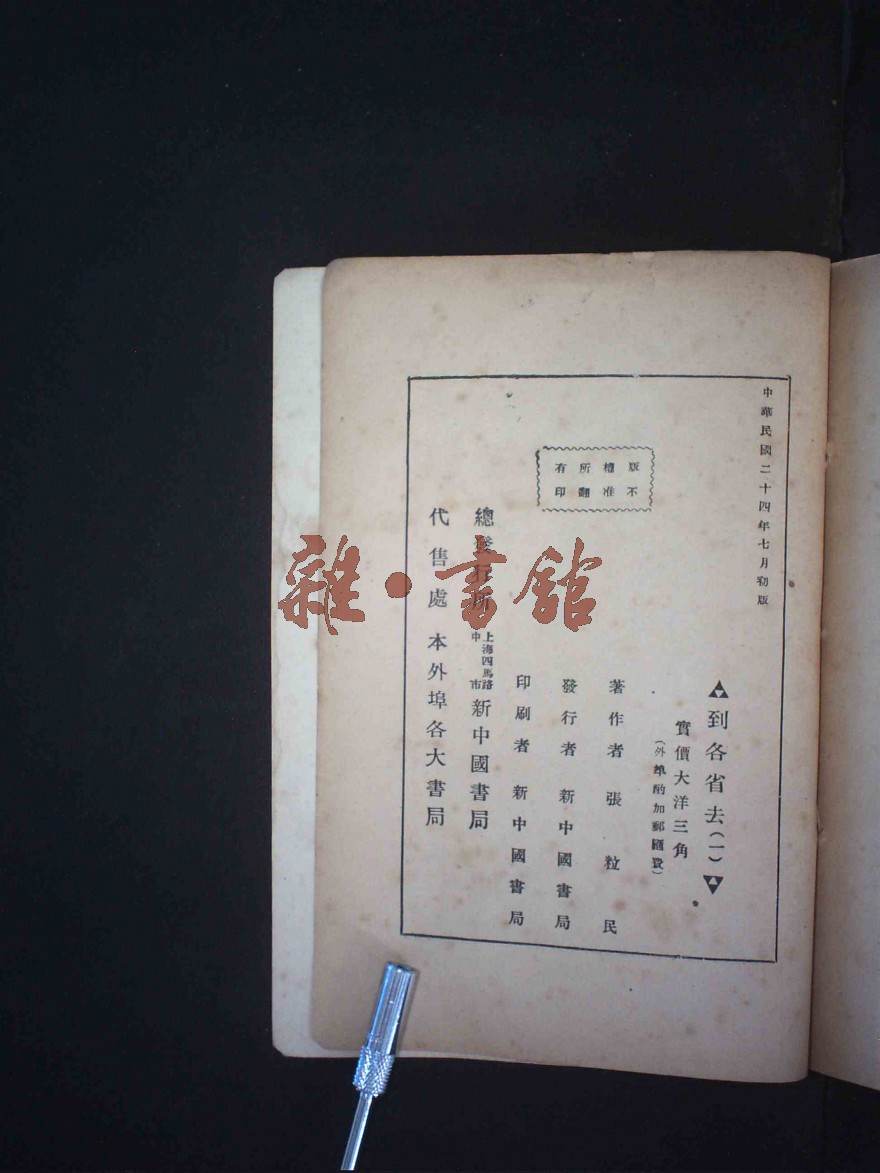 中華民國二十四年七月初版
到各省去(一)
實價大洋三角
(外埠酌加郵匯費)
版權所有
不准翻印
著作者 張粒民
發行者 新中國書局
印刷者 新中國書局
總發行所 上海四馬路中市 新中國書局
代售處 本外埠各大書局
雜·書館